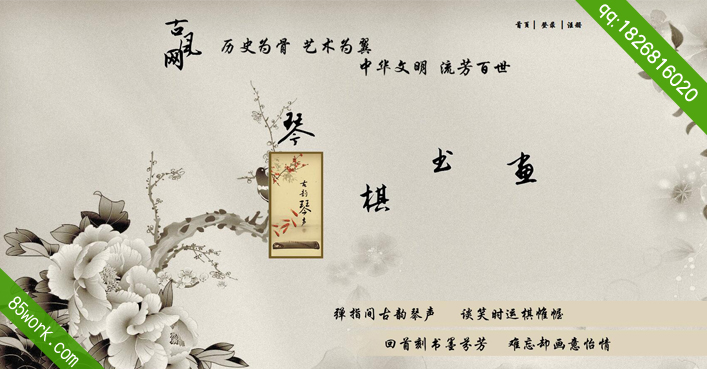 古风网
首页 | 登录 | 注册
历史为骨 艺术为翼
中华文明 流芳百世
qq:1826816020
琴
棋
书
画
古韵琴声
弹指间古韵琴声 谈笑时运棋帷幄
回首刻书墨芬芳 难忘却画意怡情
85work.com